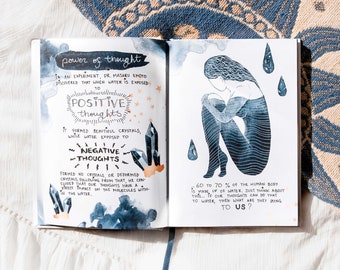 power of thought
IN AN EXPERIMENT, DR. MASARU EMOTO
DISCOVERED THAT WHEN WATER IS EXPOSED
TO
POSITIVE
thoughts
IT FORMED BEAUTIFUL CRYSTALS,
WHILE WATER EXPOSED TO
NEGATIVE
THOUGHTS
FORMED NO CRYSTALS OR DEFORMED
CRYSTALS. FOLLOWING FROM THAT, WE CAN
THAT OUR THOUGHTS HAVE A
IMPACT ON THE MOLECULES WITHIN
THE WATER.
60 TO 70 % OF THE HUMAN BODY
IS MADE UP OF WATER. JUST THINK ABOUT
IT: IF OUR THOUGHTS CAN DO THAT
TO WATER, THEN WHAT ARE THEY DOING
TO US?